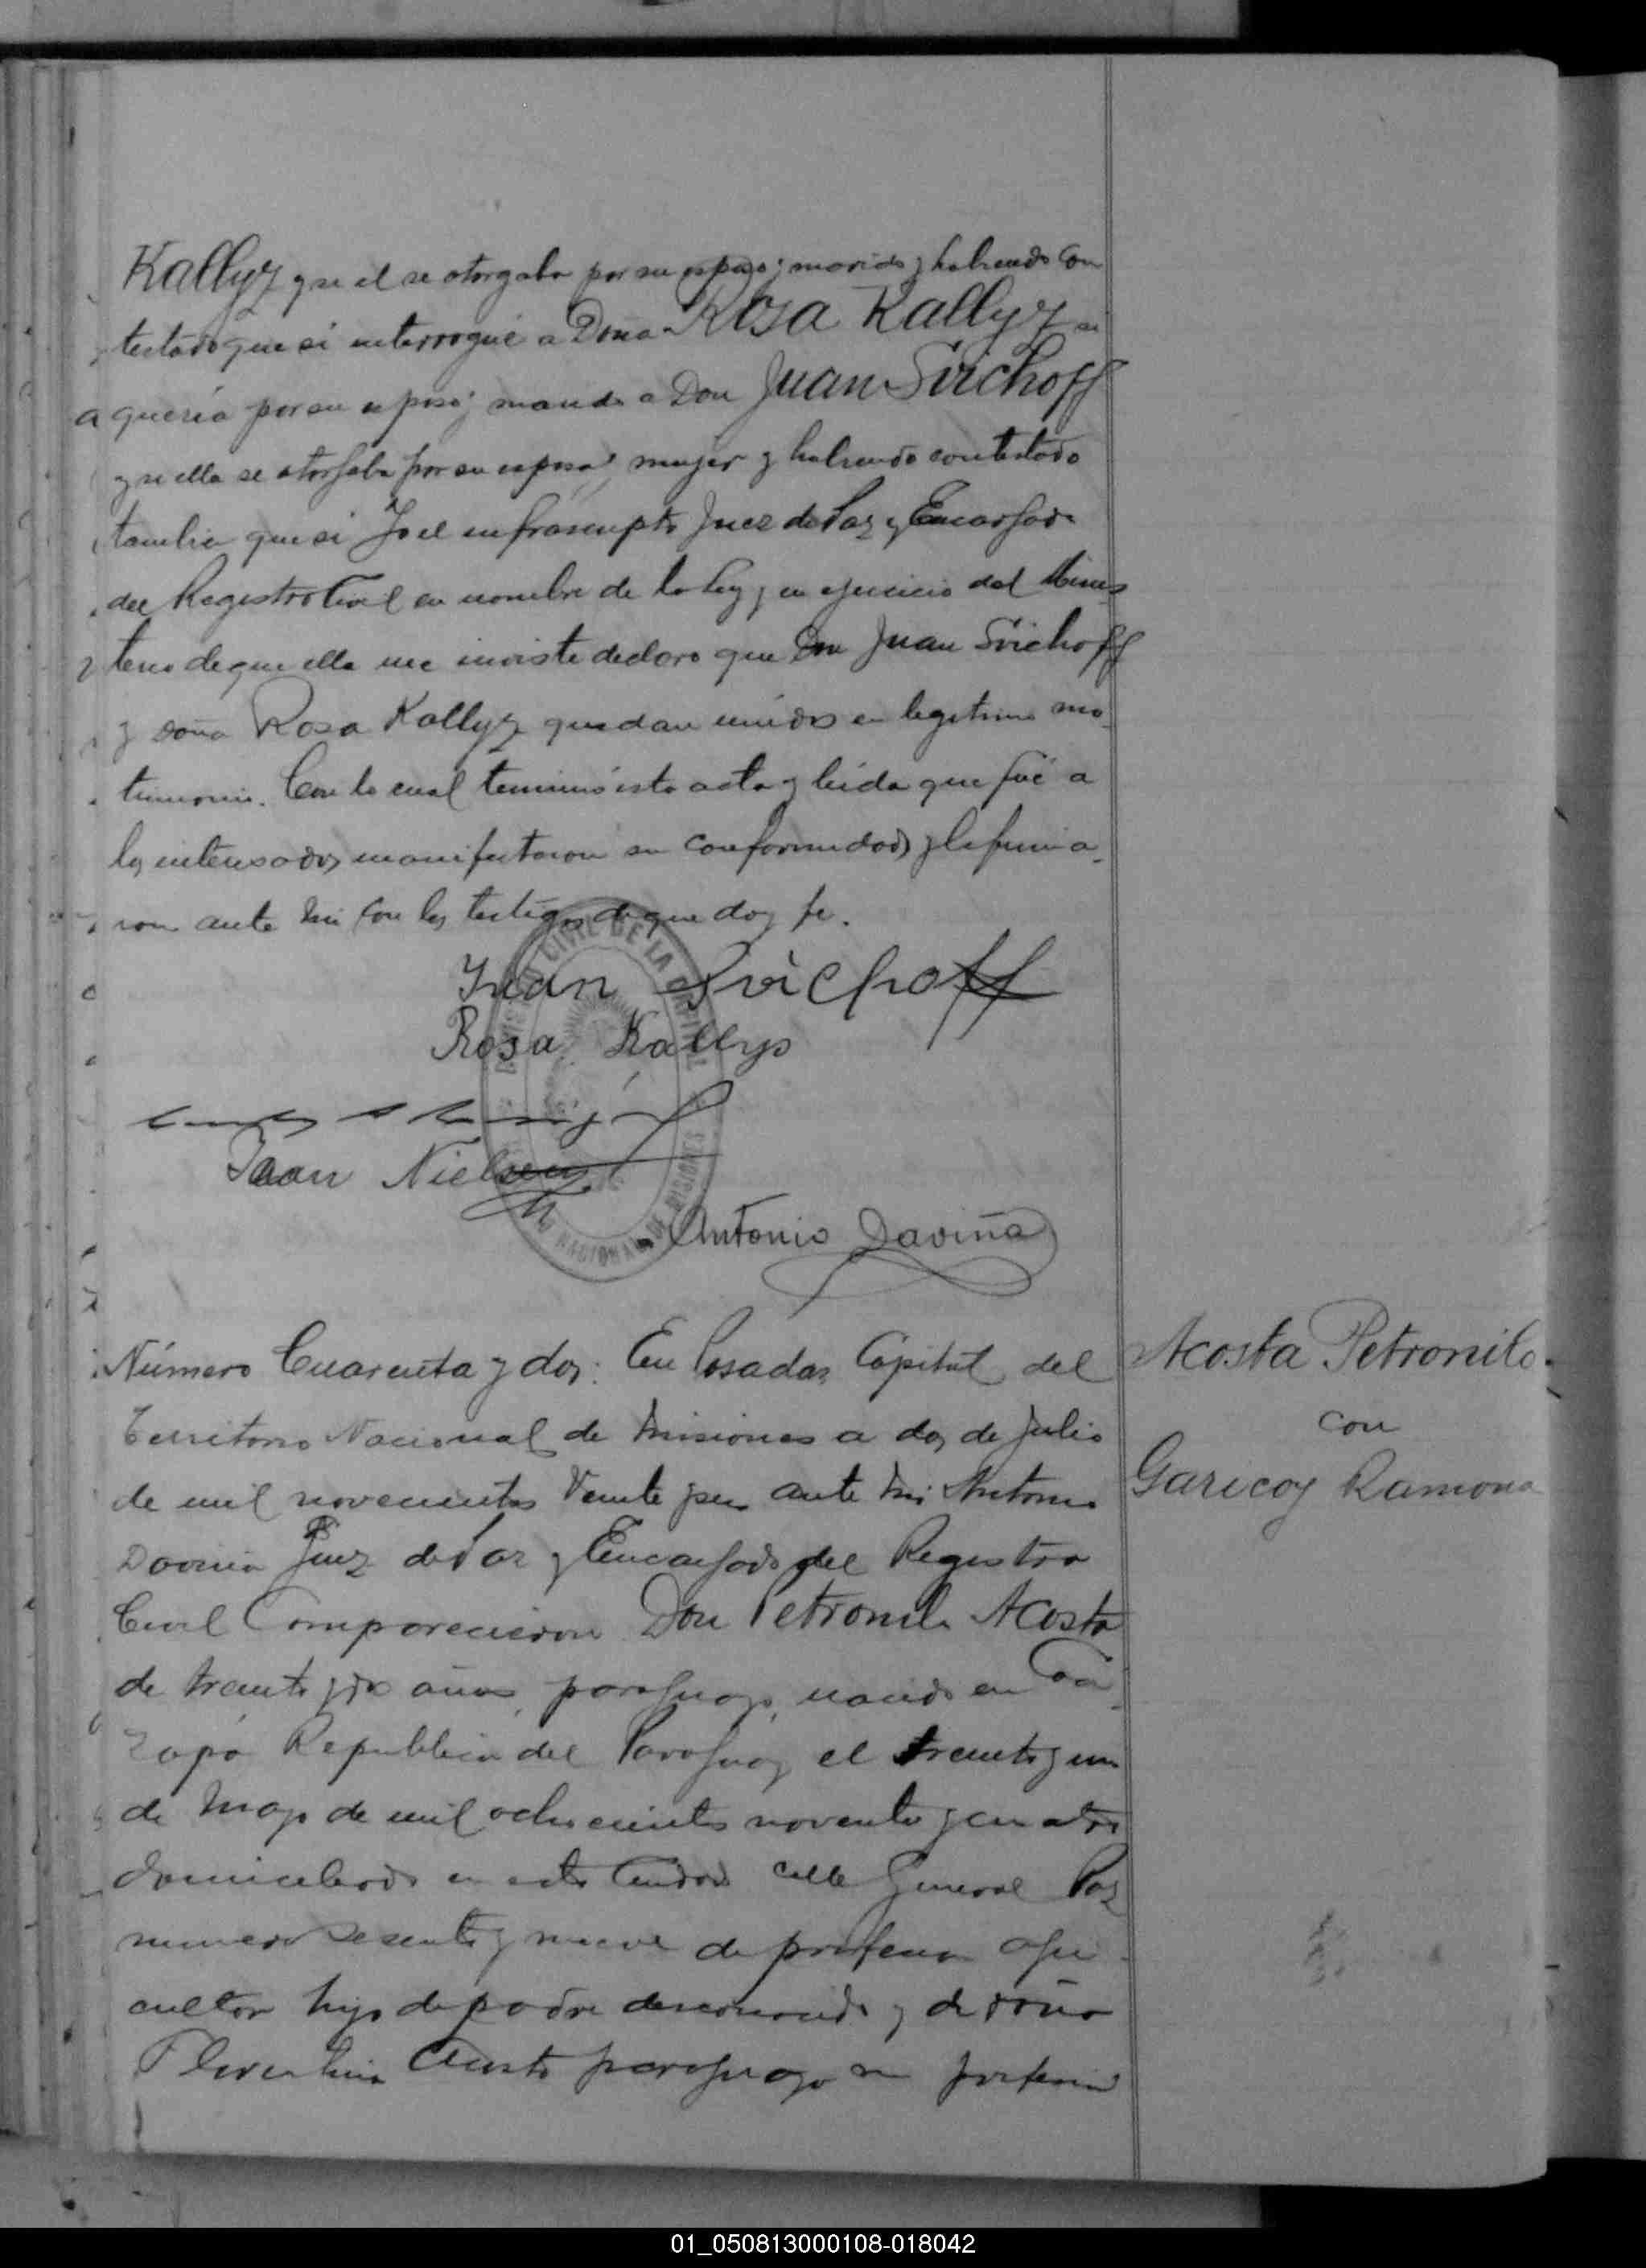 Kallyz y si el se otorgaba por su esposo y marido y habiendo con
testado que si interrogué a Doña Rosa Kallyz si
queria por su esposo y marido a Don Juan Svichoff
y si ella se otorgaba por su esposa y mujer y habiendo contestado
tambien que si Yo el infrascripto Juez de Paz y Encargado
del Registro Civil en nombre de la ley y en ejercicio del Minis
terio de que ella me inviste declaro que Don Juan Svichoff
y doña Rosa Kallyz quedan unidos en legitimo ma
trimonio. Con lo cual terminó esta acta y leida que fué a
los interesados manifestaron su conformidad y la firma
ron ante mi con los testigos de que doy fe.
Juan Svichoff
Rosa Kallys
Juan Nielsen
Antonio Daviña
REGISTRO CIVIL DE LA CAPITAL
TERRITORIO NACIONAL DE MISIONES
Número Cuarenta y dos: En Posadas Capital del
Territorio Nacional de Misiones a dos de Julio
de mil novecientos Veinte y seis ante mi Antonio
Daviña Juez de Paz y Encargado del Registro
Civil Comparecieron Don Petronilo Acosta
de treinta y dos años, paraguayo, nacido en Caa
zapá Republica del Paraguay el treinta y uno
de Mayo de mil ochocientos noventa y cuatro
domiciliado en esta Ciudad calle General Paz
numero sesenta y nueve de profesion agri
cultor hijo de padre desconocido y de doña
Florentina Acosta paraguaya sin profesion
Acosta Petronilo
con
Garicoy Ramona
01_050813000108-018042